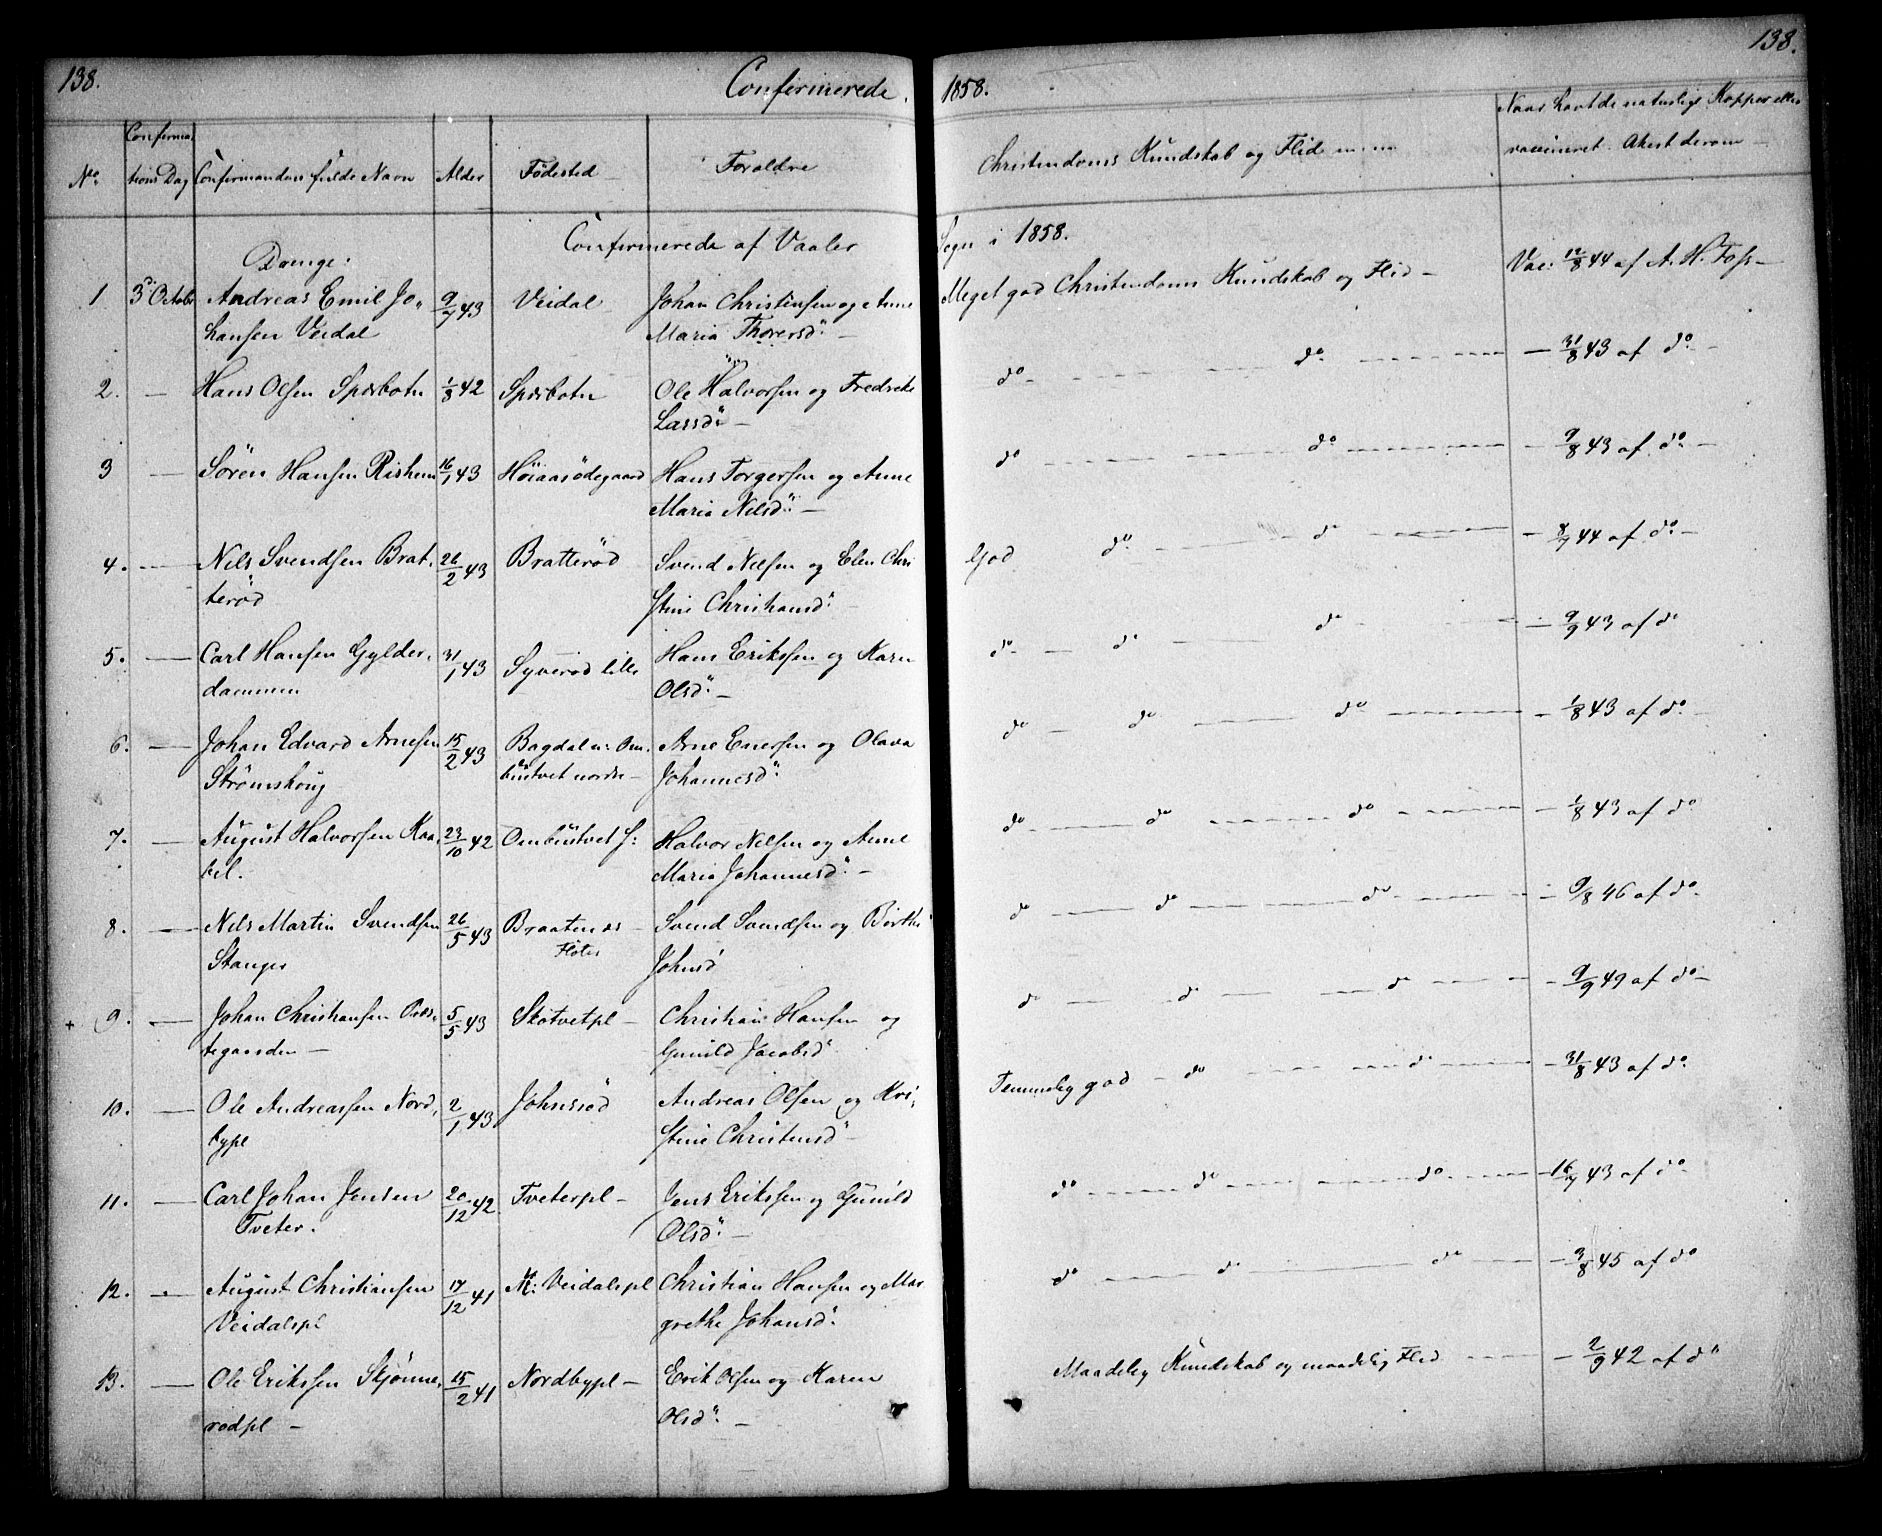 138.
Confirmerede
1858.
138.
No.
Confirma-
tions Dag
Confirmandens fulde Navn
Alder
Födested
Forældre
Christendoms Kundskab og Flid
Naar havt de naturlige Kopper eller
vaccineret. Atest derom
Confirmerede af Vaaler
Sogn i 1858.
Drenge:
1 3d Octobr Andreas Emil Jo- 9/7 43 Veidal Johan Christensen og Anne Meget god Christendoms Kundskab og Flid Vac: 12/8 44 af A. H. Foss
hansen Veidal Maria Thorersd:
2. — Hans Olsen Spærbotn 1/8 42 Spærbotn Ole Halvorsen og Fredrikke do — do — 31/8 43 af do
Larsd:
3 — Sören Hansen Rishem 16/1 43 Höiaasödegaard Hans Torgersen og Anne do — do — 9/8 43 af do
Maria Nilsd: —
4. — Nils Svendsen Brat- 26/2 43 Bratterød Svend Nilsen og Elen Chri God do — do — 8/7 44 af do
terød stine Christiansd:
5. — Carl Hansen Gylder- 31/1 43 Syverød lille Hans Eriksen og Karen do — do — do — 9/9 43 af do
dammen Olsd: —
6. — Johan Edvard Arnesen 15/2 43 Bagdal n: Om- Arne Enersen og Olava do — do — do — 1/8 43 af do
Strömshoug büstvet nordre — Johannesd:
7. — August Halvorsen Kaa- 23/10 42 Ombustvet s: Halvor Nilsen og Anne do — do — do — 1/8 43 af do
bel. Maria Johannesd: —
8. — Nils Martin Svendsen 26/5 43 Braaten Svend Svendsen og Birthe do — do — do — 9/8 46 af do
Stanger Fløter Johnsd
+ 9. — Johan Christiansen Præs- 5/5 43 Skotvetpl — Christian Hansen og do — do — do — 9/9 49 af do
tegaarden — Gunild Jacobsd
10. — Ole Andreassen Nord- 2/1 43 Johnsrød Andreas Olsen og Kri- Temmelig god — do — do — 31/8 43 af do
bypl stine Christensd
11. — Carl Johan Jensen 20/12 42 Tveterpl — Jens Eriksen og Gunild do — do — do — 16/7 43 af do
Tveter. Olsd: —
12. — August Christiansen 17/12 41 N: Veidalspl Christian Hansen og Mar do — do — do — 3/8 45 af do
Veidalspl grethe Johansd:
13. — Ole Eriksen Skjønne- 15/2 41 Nordbypl — Erik Olsen og Karen Maadelig Kundskab og maadelig Flid — 2/9 42 af do
rødpl — Olsd: —